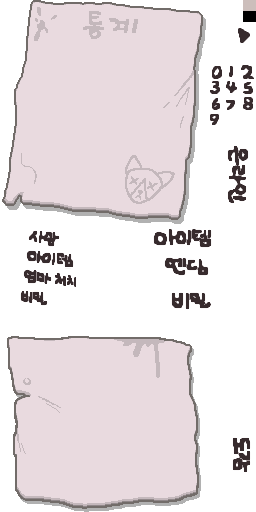 통계
0 1 2
3 4 5
6 7 8
9
온라인
사망
아이템
엄마 처치
비밀
아이템
엔딩
비밀